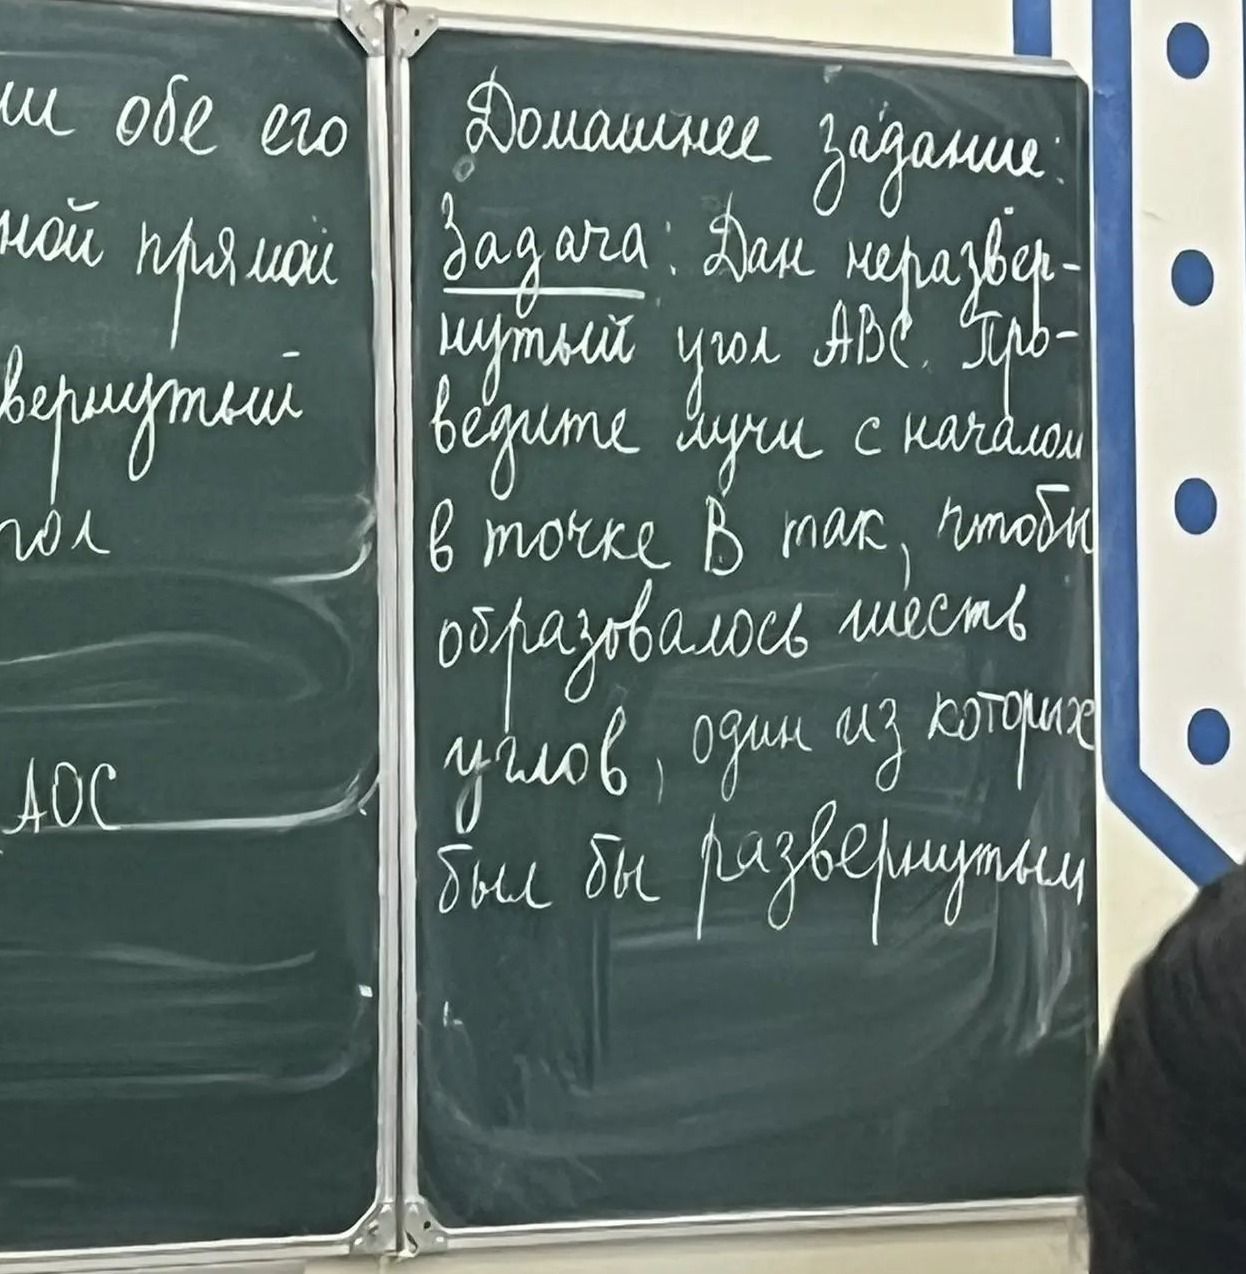 ми обе его
ной прямой
вернутый
гол
АОС
Домашнее задание:
Задача: Дан неразвер-
нутый угол АВС. Про-
ведите лучи с началом
в точке В так, чтобы
образовалось шесть
углов, один из которых
был бы развернутым